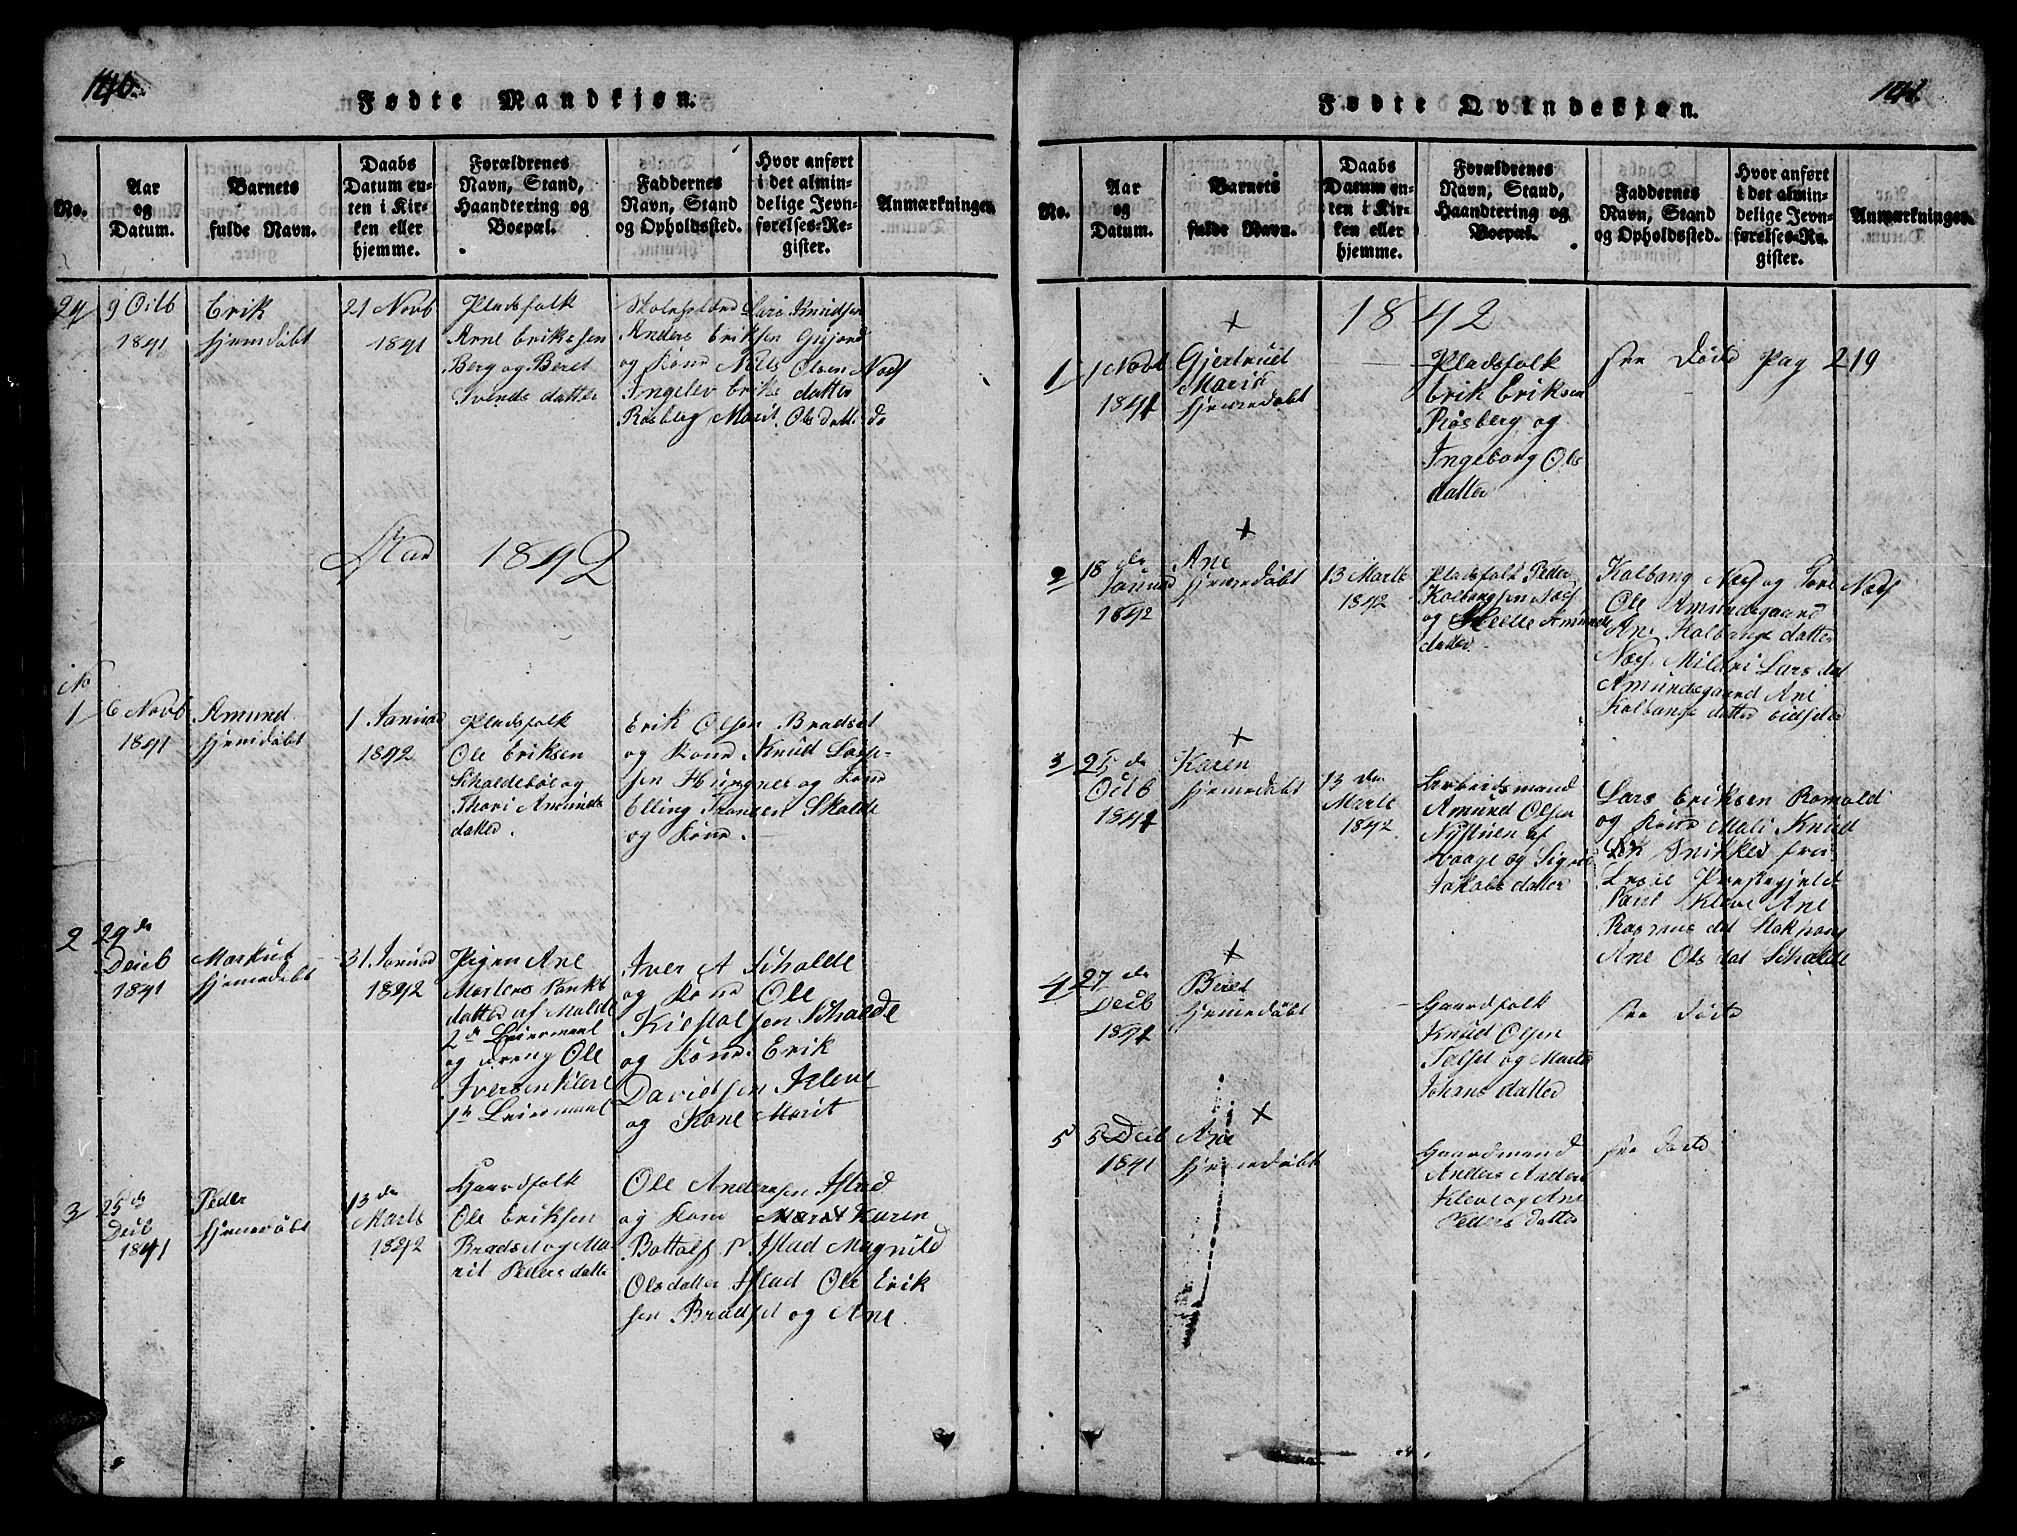 140.
Fødte Mandkjøn.
No.
Aar
og
Datum.
Barnets
fulde Navn.
Daabs
Datum en-
ten i Kir-
ken eller
hjemme.
Forældrenes
Navn, Stand,
Haandtering og
Boepæl.
Faddernes
Navn, Stand
og Opholdssted.
Hvor anført
i det almin-
delige Jevn-
førelses-Re-
gister.
Anmærkninger.
9 Octb
1841
Erik
hjemedøbt
21 Novb
1841
Pladsfolk
Arne Eriksen
Berg og Beret
Svends datter
Skoleholder Lars Knudsen
Anders Eriksen
og Kone Niels Olsen Næss
Ingelev Eriks datter
Røsberg Marit Olsdatt do
Aar 1842
No
1
6 Novb
1841
Amund
hjemedøbt
1 Januar
1842
Pladsfolk
Ole Eriksen
Skaldebøe og
Thori Amunds
datter.
Erik Olsen Bradset
og Kone Knud
sen Hungnes og Kone
Elling Skalde
og Kone.
2
29 de
Decb
1841
Markus
hjemedøbt
31 Januar
1842
Pigen Ane
Mortens
datter af Molde
2de Leiermaal
og dreng Ole
Iversen
1ste Leiermaal
Iver A Schalde
og Kone Ole
Kristofsen Schalde
og Kone Erik
Davidsen
og Kone Marit
3
25 de
Decb
1841
Peder
hjemedøbt
13 de
Marts
1842
Gaardfolk
Ole Eriksen
Bradset og Ma-
rit Peders datte
Ole Andersen Istad
og Kone Marit Karen
Bottolf P Istad Magnild
Olsdatter Istad Ole Erik
sen Bradset og Ane
141.
Fødte Qvindekjøn.
No.
Aar
og
Datum.
Barnets
fulde Navn.
Daabs
Datum en-
ten i Kir-
ken eller
hjemme.
Forældrenes
Navn, Stand,
Haandtering og
Boepæl.
Faddernes
Navn, Stand
og Opholdssted.
Hvor anført
i det almin-
delige Jevn-
førelses-Re-
gister.
Anmærkninger.
1842
1
1 Novb
1841
Gjertrud
Maria
hjemedøbt
Pladsfolk
Erik Eriksen
Røsberg og
Ingeborg Ols
datter
see Døde Pag 219
2
18 de
Januar
1842
Ane
hjemedøbt
13 Marts
1842
Pladsfolk Peder
Kolbangsen Næss
og Amunds
datter.
Kolbang Næss og Tore Næss
Ole Amundsgaard
Ane Kolbangs datter
Næss, Mildri Lars dat
Amundsgaard Ane
Kolbangs datter
3
25 de
Octb
1841
Karen
hjemedøbt
13 de
Marts
1842
Arbeidsmand
Amund Olsen
Nystuen af
Vaage og Sigrid
Jakobs datter
Lars Eriksen Romold
og Kone Mali Knud
Snikker fra
Præstegjeld
Kleve Ane
Rasmus dat
Ane Ols dat Schalde
4
27 de
Decb
1841
Beret
hjemedøbt
Gaardfolk
Knud Olsen
Talset og Marta
Johans datter
see døde
5
5 Decb
1841
Ane
hjemedøbt
Gaardmand
Anders Anders
Kleve og Ane
Peders datter
see døde